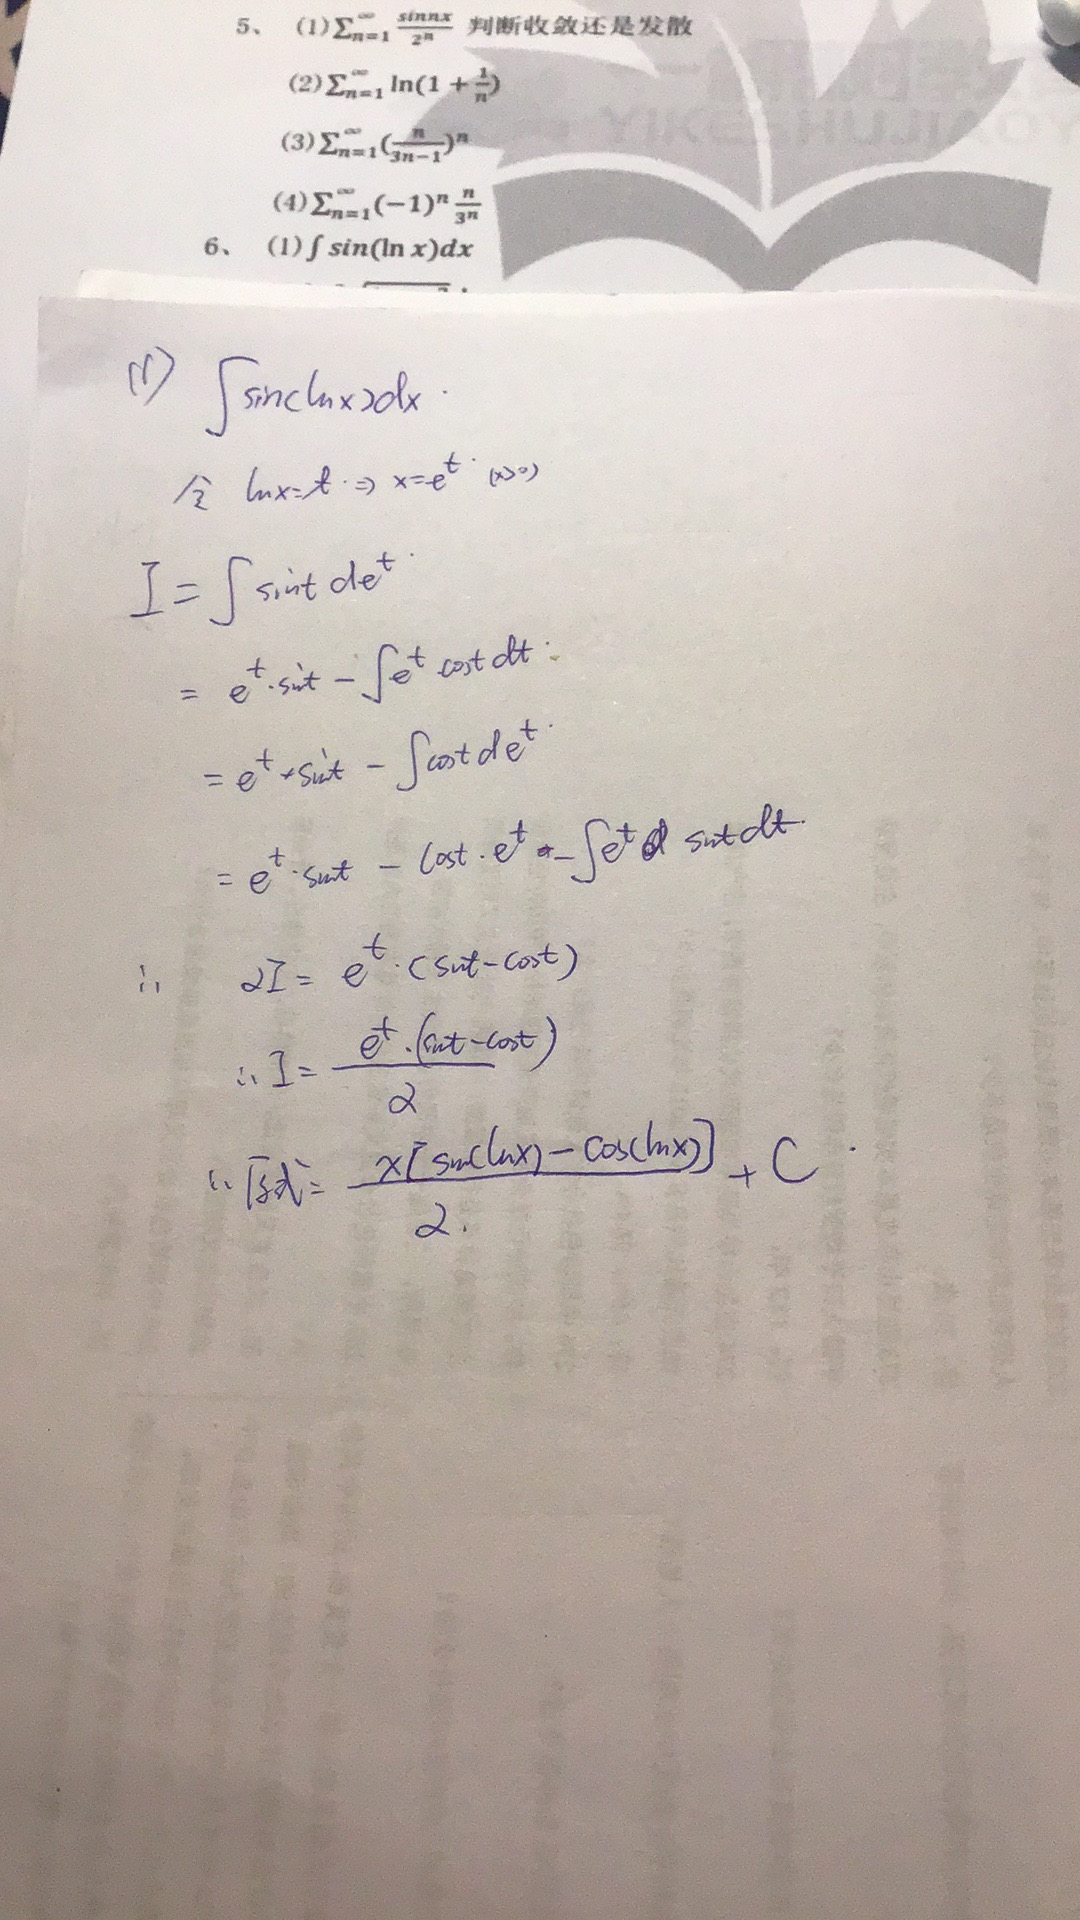 5、 (1)∑_{n=1}^{∞} \frac{sinnx}{2^n} 判断收敛还是发散
(2)∑_{n=1}^{∞} ln(1 + \frac{1}{n})
(3)∑_{n=1}^{∞}(\frac{n}{3n-1})^n
(4)∑_{n=1}^{∞}(-1)^n \frac{n}{3^n}
6、 (1)∫ sin(ln x)dx
(1) ∫sin(lnx)dx
令 lnx=t ⇒ x=e^t (x>0)
I = ∫ sint de^t
= e^t·sint - ∫e^t cost dt
= e^t·sint - ∫cost de^t
= e^t·sint - cost·e^t - ∫e^t sint dt
∴ 2I = e^t·(sint-cost)
∴ I = \frac{e^t·(sint-cost)}{2}
∴ 原式= \frac{x[sin(lnx)-cos(lnx)]}{2} + C